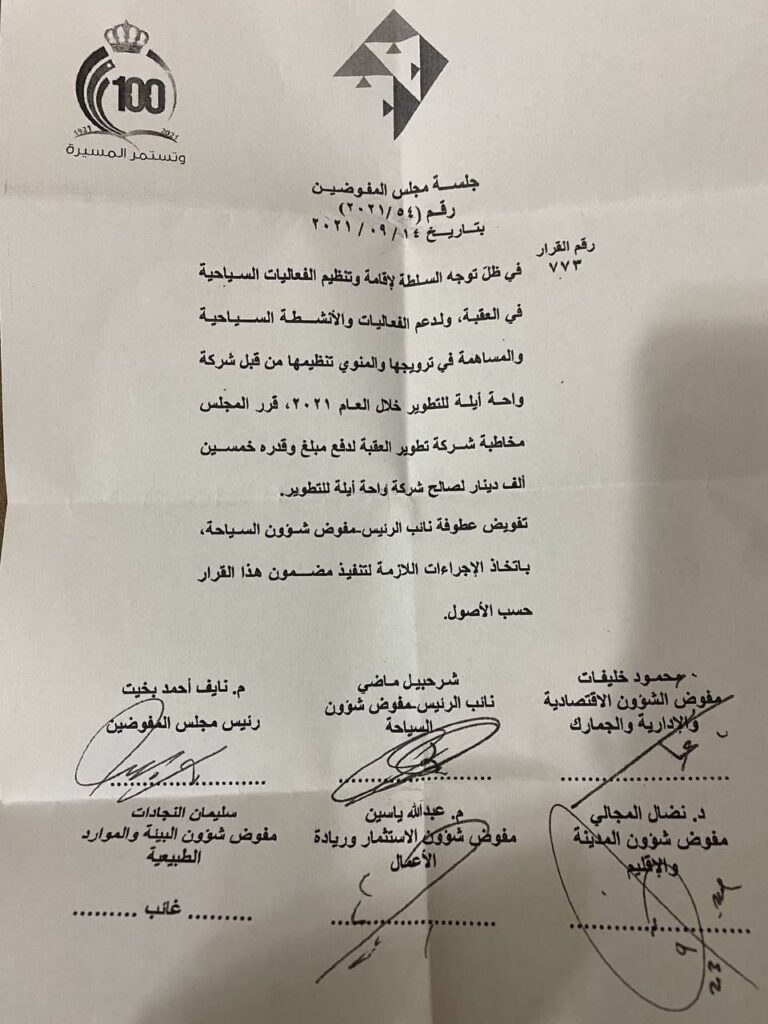 100
1921 2021
وتستمر المسيرة
جلسة مجلس المفوضين
رقم (٢٠٢١/٥٤)
بتاريخ ٢٠٢١/٠٩/١٤
رقم القرار
٧٧٣
في ظلّ توجه السلطة لإقامة وتنظيم الفعاليات السياحية
في العقبة، ولدعم الفعاليات والأنشطة السياحية
والمساهمة في ترويجها والمنوي تنظيمها من قبل شركة
واحة أيلة للتطوير خلال العام ٢٠٢١، قرر المجلس
مخاطبة شركة تطوير العقبة لدفع مبلغ وقدره خمسين
ألف دينار لصالح شركة واحة أيلة للتطوير.
تفويض عطوفة نائب الرئيس-مفوض شؤون السياحة،
باتخاذ الإجراءات اللازمة لتنفيذ مضمون هذا القرار
حسب الأصول.
محمود خليفات
مفوض الشؤون الاقتصادية
والإدارية والجمارك
شرحبيل ماضي
نائب الرئيس-مفوض شؤون
السياحة
م. نايف أحمد بخيت
رئيس مجلس المفوضين
د. نضال المجالي
مفوض شؤون المدينة
والإقليم
م. عبدالله ياسين
مفوض شؤون الاستثمار وريادة
الأعمال
سليمان النجادات
مفوض شؤون البيئة والموارد
الطبيعية
......... غائب .........
23
9